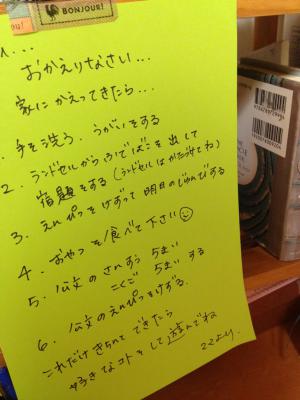 BONJOUR!
おかえりなさい...
家にかえってきたら...
1. 手を洗う、うがいをする
2. ランドセルからふでばこを出して
宿題をする(ランドセルはかたづけてね)
3. えんぴつをけずって明日のじゅんびする
4. おやつを食べて下さい
5. 公文のさんすう 5まい
こくご 5まい する
6. 公文のえんぴつをけずる。
これだけきちんとできたら
好きなコトをして遊んでね
ママより。